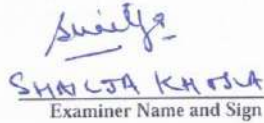 SHAILJA KHOSLA
Examiner Name and Sign